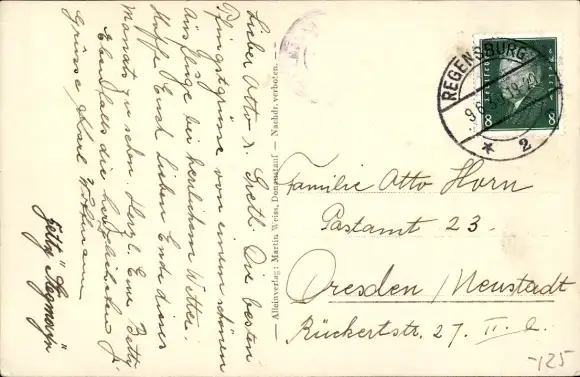 Lieber Otto u. Gretl. Die besten
Pfingstgrüsse von einem schönen
Ausfluge bei herrlichem Wetter.
Hoffe Euch Lieben Ende dieses
Monats zu sehen. Herzl. Eure Betty
Ebenfalls die herzlichsten
Grüsse, Karl
Betty
— Alleinverlag: Martin Weiss, Donaustauf — Nachdr. verboten. —
REGENSBURG
2
8 8
Familie Otto Horn
Postamt 23.
Dresden/Neustadt
Rückertstr. 27. II. l.
-125